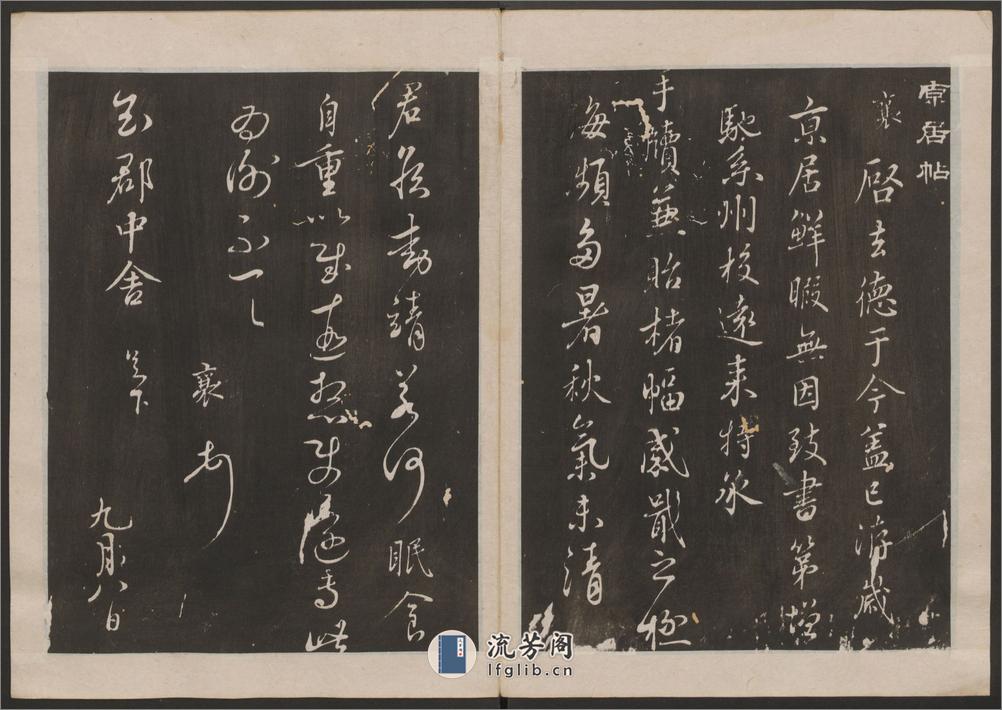 京居帖
襄啓去德于今盖已游歲
京居鮮暇無因致書第增
馳系州校遠来特承
手牘兼貽楮幅感戢之極
海瀕多暑秋氣未清
君侯動靖若何眠食
自重以慰遠懷使還専此
為謝不一一
襄上
公郡中舍足下
九月八日
流芳阁
lfglib.cn